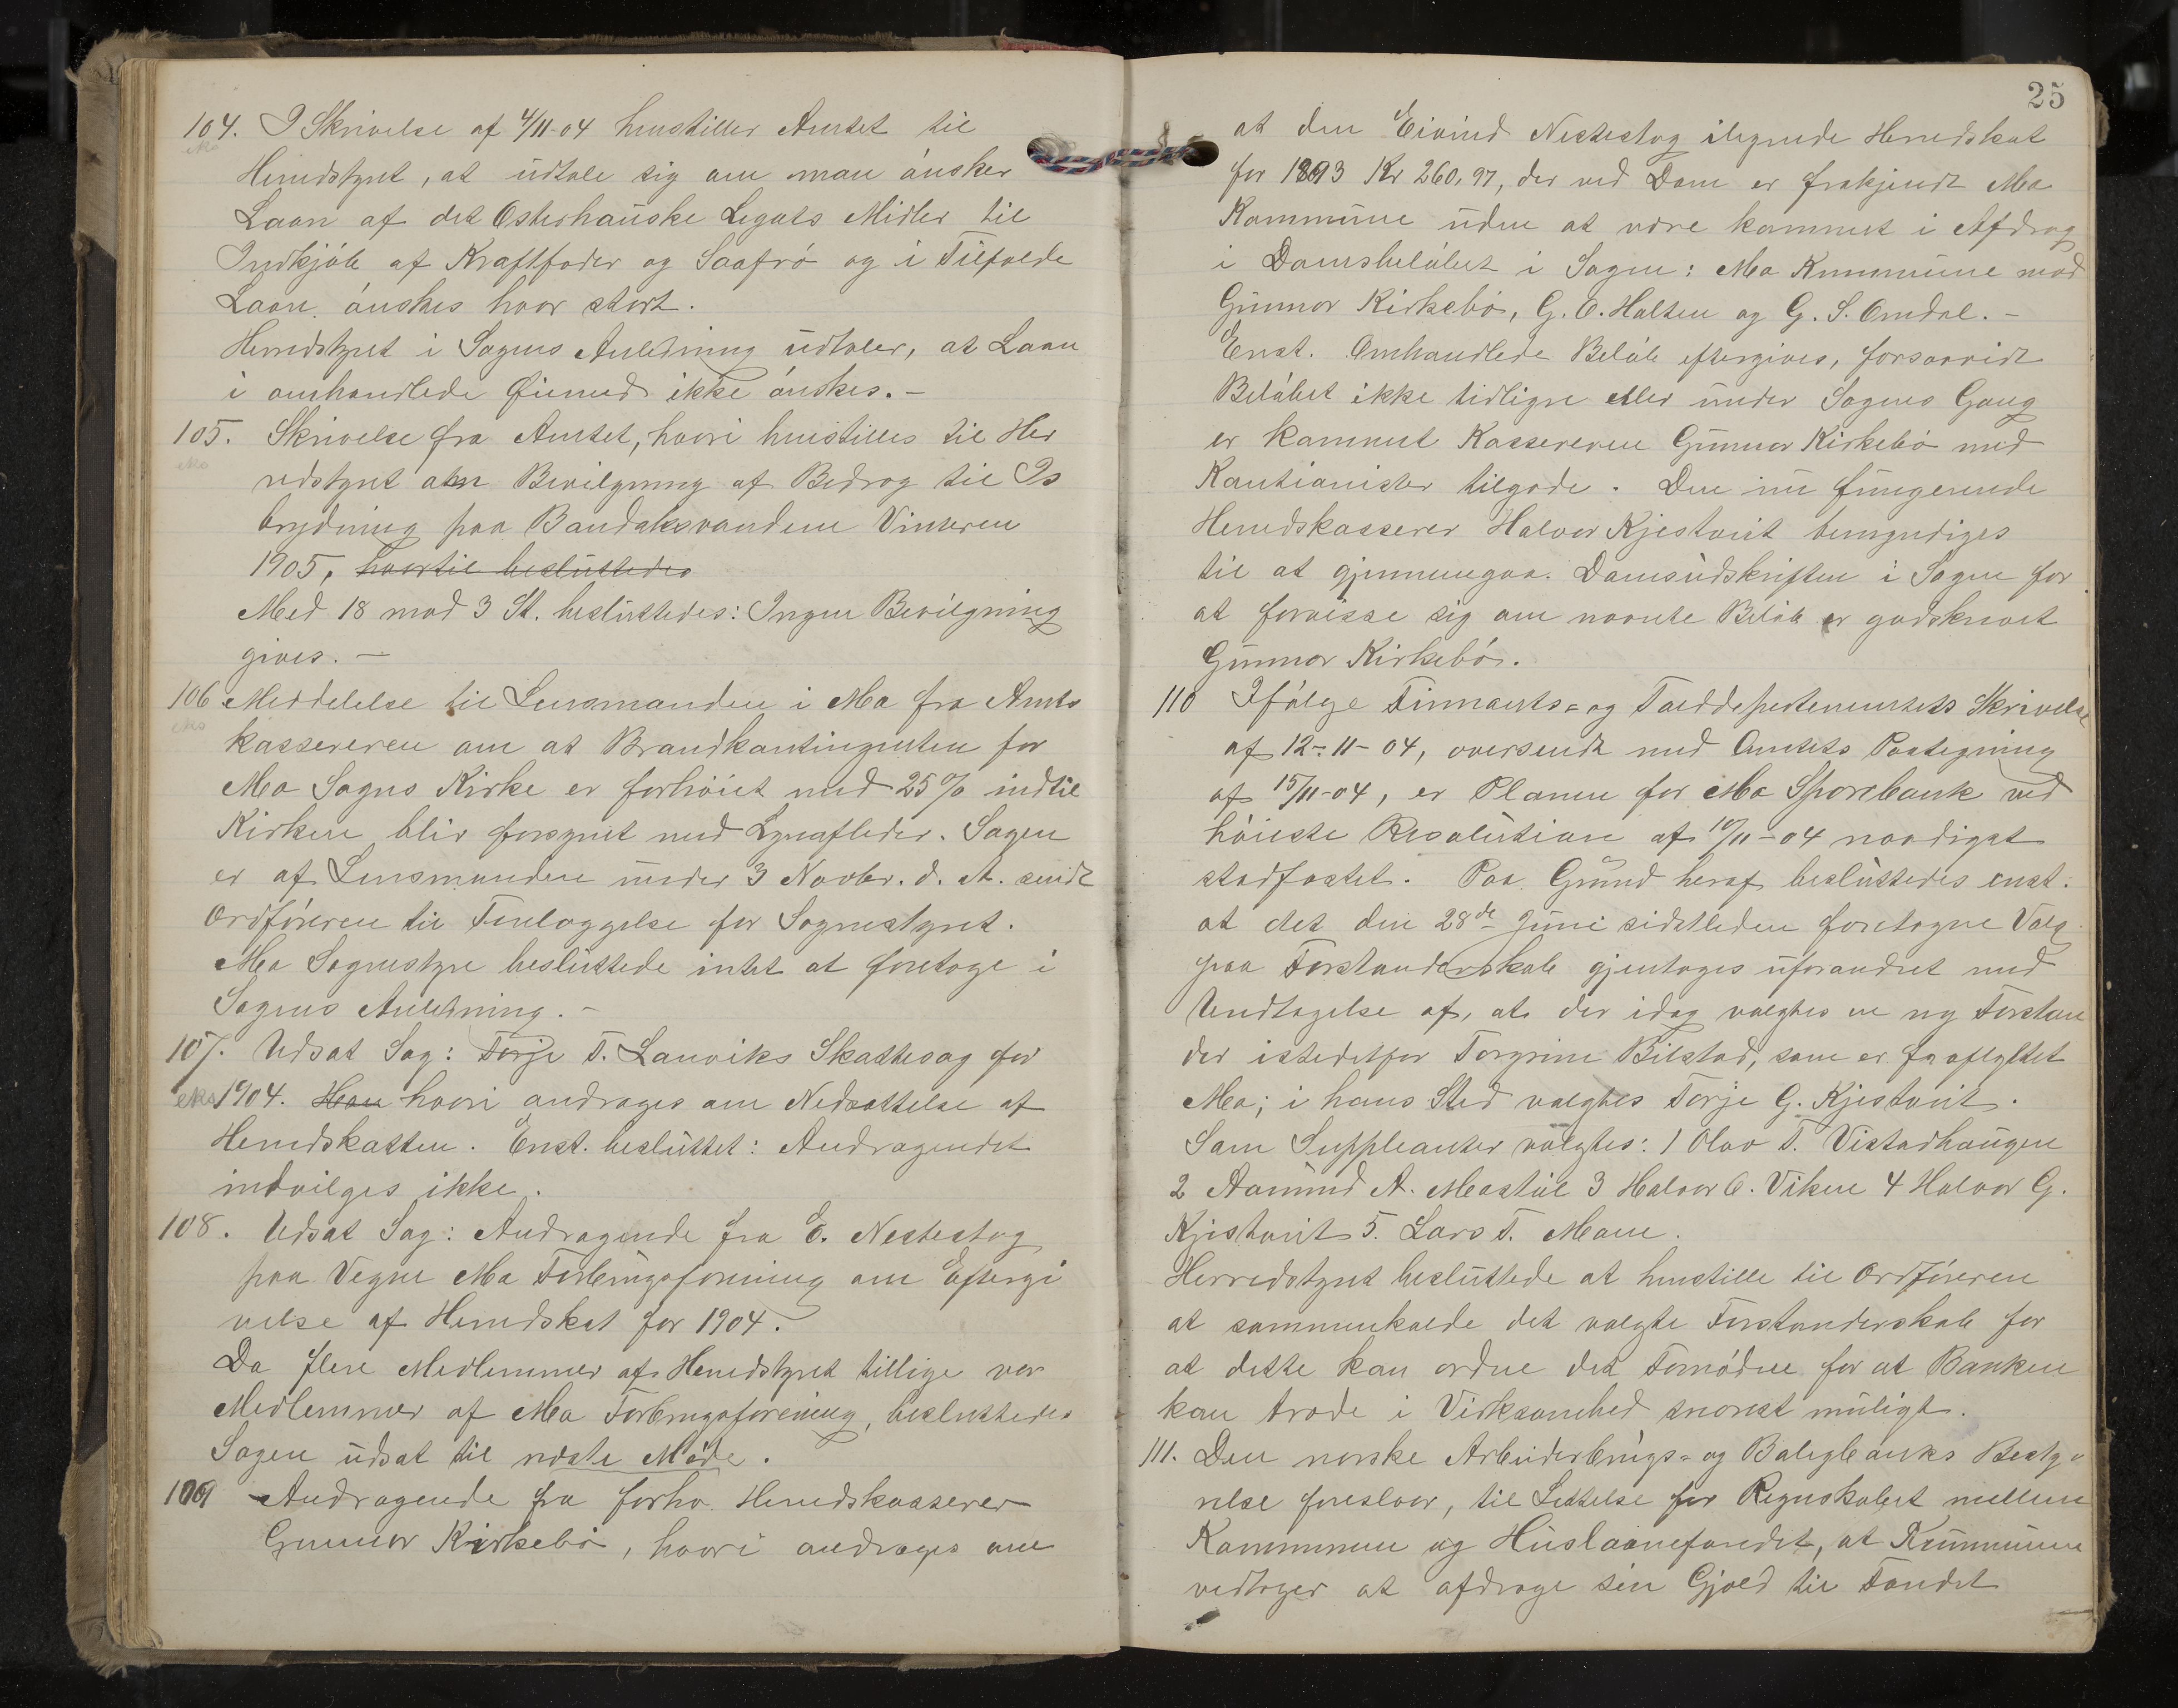 104. I Skrivelse af 4/11-04 henstiller Amtet til
eks
Herredstyret, at udtale sig om man ønsker
Laan af det Osterhauske Legats Midler til
Indkjøb af Kraftfoder og Saafrø og i Tilfælde
Laan ønskes hvor stort.
Herredstyret i Sagens Anledning udtaler, at Laan
i omhandlede Øiemed ikke ønskes. -
105. Skrivelse fra Amtet, hvori henstilles til Her
eks
redstyret om Bevilgning af Bedrag til Is
brydning paa Bandaksvandene Vinteren
1905, hvortil besluttedes
Med 18 mod 3 St. besluttedes: Ingen Bevilgning
gives. -
106 Meddelelse til Lensmanden i Mo fra Amts
eks
kassereren om at Brandkontingenten for
Mo Sogns Kirke er forhøiet med 25% indtil
Kirken blir forsynet med Lynafleder. Sagen
er af Lensmanden under 3 Novbr. d. A. sendt
Ordføreren til Forelæggelse for Sognestyret.
Mo Sognestyre besluttede intet at foretage i
Sagens Anledning. -
107. Udsat Sag: Torje T. Lauviks Skattesag for
eks 1904. Han hvori andrages om Nedsættelse af
Herredskatten. Enst. besluttet: Andragendet
indvilges ikke.
108. Udsat Sag: Andragende fra E. Nestestog
paa Vegne Mo Forbrugsforening om Eftergi
velse af Herredskat for 1904.
Da flere Medlemmer af Herredstyret tillige var
Medlemmer af Mo Forbrugsforening, besluttedes
Sagen udsat til næste Møde.
109 Andragende fra forhv. Herredskasserer
Gunnar Kirkebø, hvori andrages om
25
at den Eivind Nestestog ilignede Herredskat
for 1893 Kr 260,97, der ved Dom er frakjendt Mo
Kommune uden at være kommet i Afdrag
i Domsbeløbet i Sagen: Mo Kommune mod
Gunnar Kirkebø, G. O. Holten og G. S. Omdal. -
Enst. Omhandlede Beløb eftergives, forsaavidt
Beløbet ikke tidligere eller under Sagens Gang
er kommet Kassereren Gunnar Kirkebø med
Kautionister tilgode. Den nu fungerende
Herredskasserer Halvor Kjestveit bemyndiges
til at gjennemgaa Domsudskriften i Sagen for
at forvisse sig om nævnte Beløb er godskrevet
Gunnar Kirkebø.
110 Ifølge Finnants- og Tolddepartementets Skrivelse
af 12-11-04, oversendt med Amtets Paategning
af 15/11-04, er Planen for Mo Sparebank ved
høieste Resolution af 10/11-04 naadigst
stadfæstet. Paa Grund heraf besluttedes enst.
at det den 28de Juni sidstleden foretagne Valg
paa Forstanderskab gjentages uforandret med
Undtagelse af, at der idag valgtes en ny Forstan
der istedetfor Torgrim Bilstad, som er fraflyttet
Mo; i hans Sted valgtes Torje G. Kjestveit.
Som Suppleanter valgtes: 1 Olav T. Vistadhaugen
2 Aamund A. Mostul 3 Halvor O. Viken 4 Halvor G.
Kjestveit 5. Lars T. Moen.
Herredstyret besluttede at henstille til Ordføreren
at sammenkalde det valgte Forstanderskab for
at dette kan ordne det Fornødne for at Banken
kan træde i Virksomhed snarest muligt.
111. Den norske Arbeiderbrugs- og Boligbanks Besty
relse foreslaar, til Lettelse for Regnskabet mellem
Kommunen og Huslaanefondet, at Kommunen
vedtager at afdrage sin Gjæld til Fondet